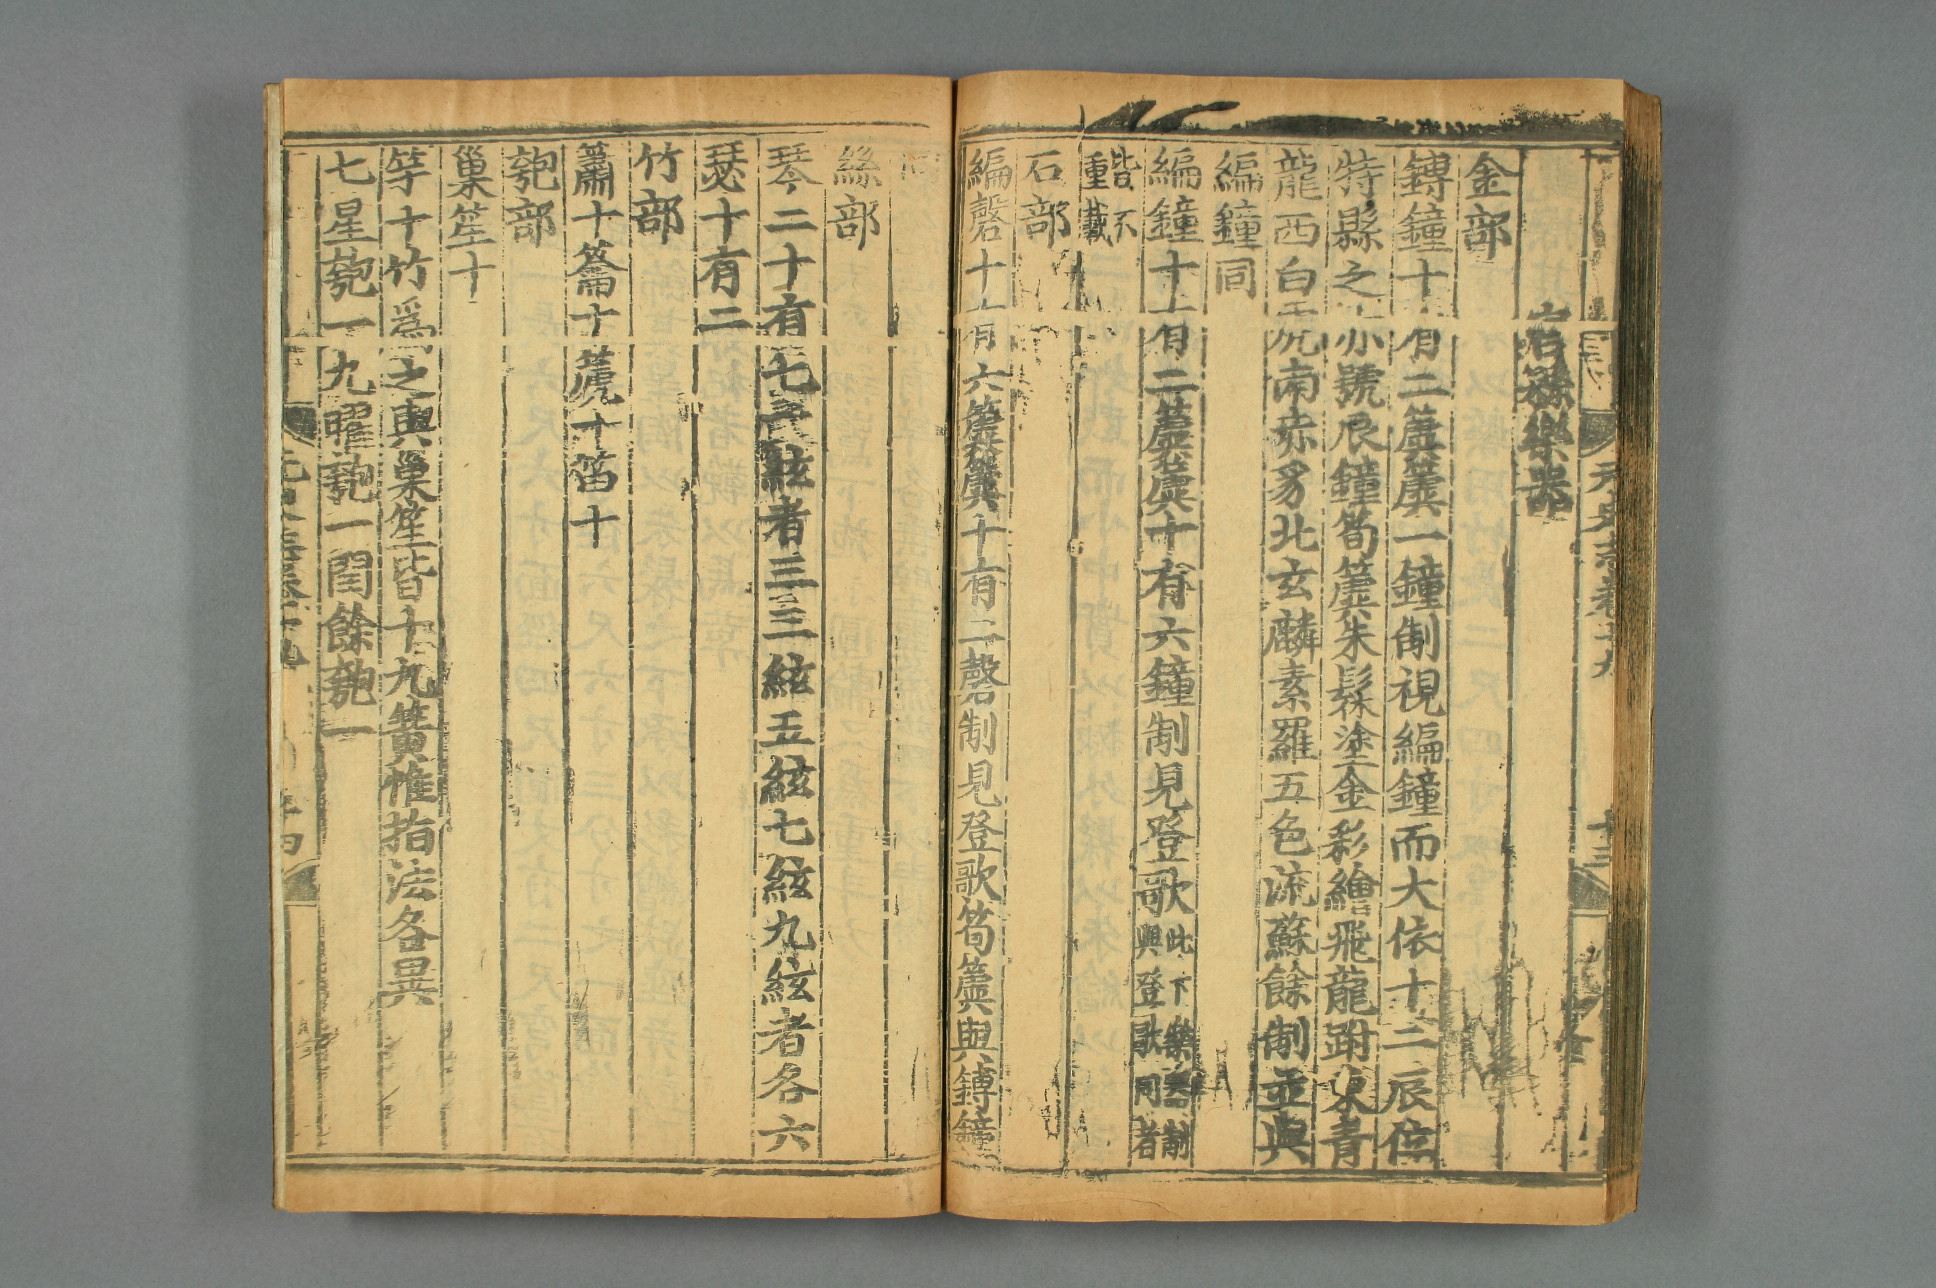 元史志卷十九
十三
宮縣樂器
金部
鎛鐘十有二簨簴一鐘制視編鐘而大依十二辰位
特縣之小號辰鐘筍簴朱髹塗金彩繪飛龍跗東青
龍西白虎南赤豸北玄麟素羅五色流蘇餘制並與
編鐘同
編鐘十有二簴簴十有六鐘制見登歌此下樂器制與登歌同者
皆不重載
石部
編磬十有六簴簴十有二磬制見登歌筍簴與鎛鐘
同
絲部
琴二十有七一絃者三三絃五絃七絃九絃者各六
瑟十有二
竹部
簫十籥十篪十笛十
匏部
巢笙十
竽十竹爲之與巢笙皆十九簧惟指法各異
七星匏一九曜匏一閏餘匏一
十四